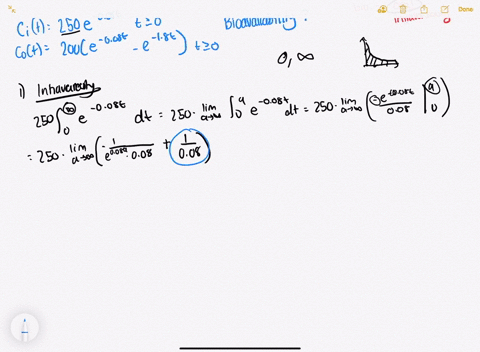 Done
Cᵢ(t): 250e t≥0 Bioavailability:
C₀(t)= 200(e^-0.08t - e^-1.8t) t≥0
0, ∞
1) Intravenously
250 ∫₀^∞ e^-0.08t dt = 250 · lim a→∞ ∫₀^a e^-0.08t dt = 250 · lim a→∞ (-e^-0.08t / 0.08 |₀^a)
= 250 · lim a→∞ (-1/(e^0.08a · 0.08) + 1/0.08)